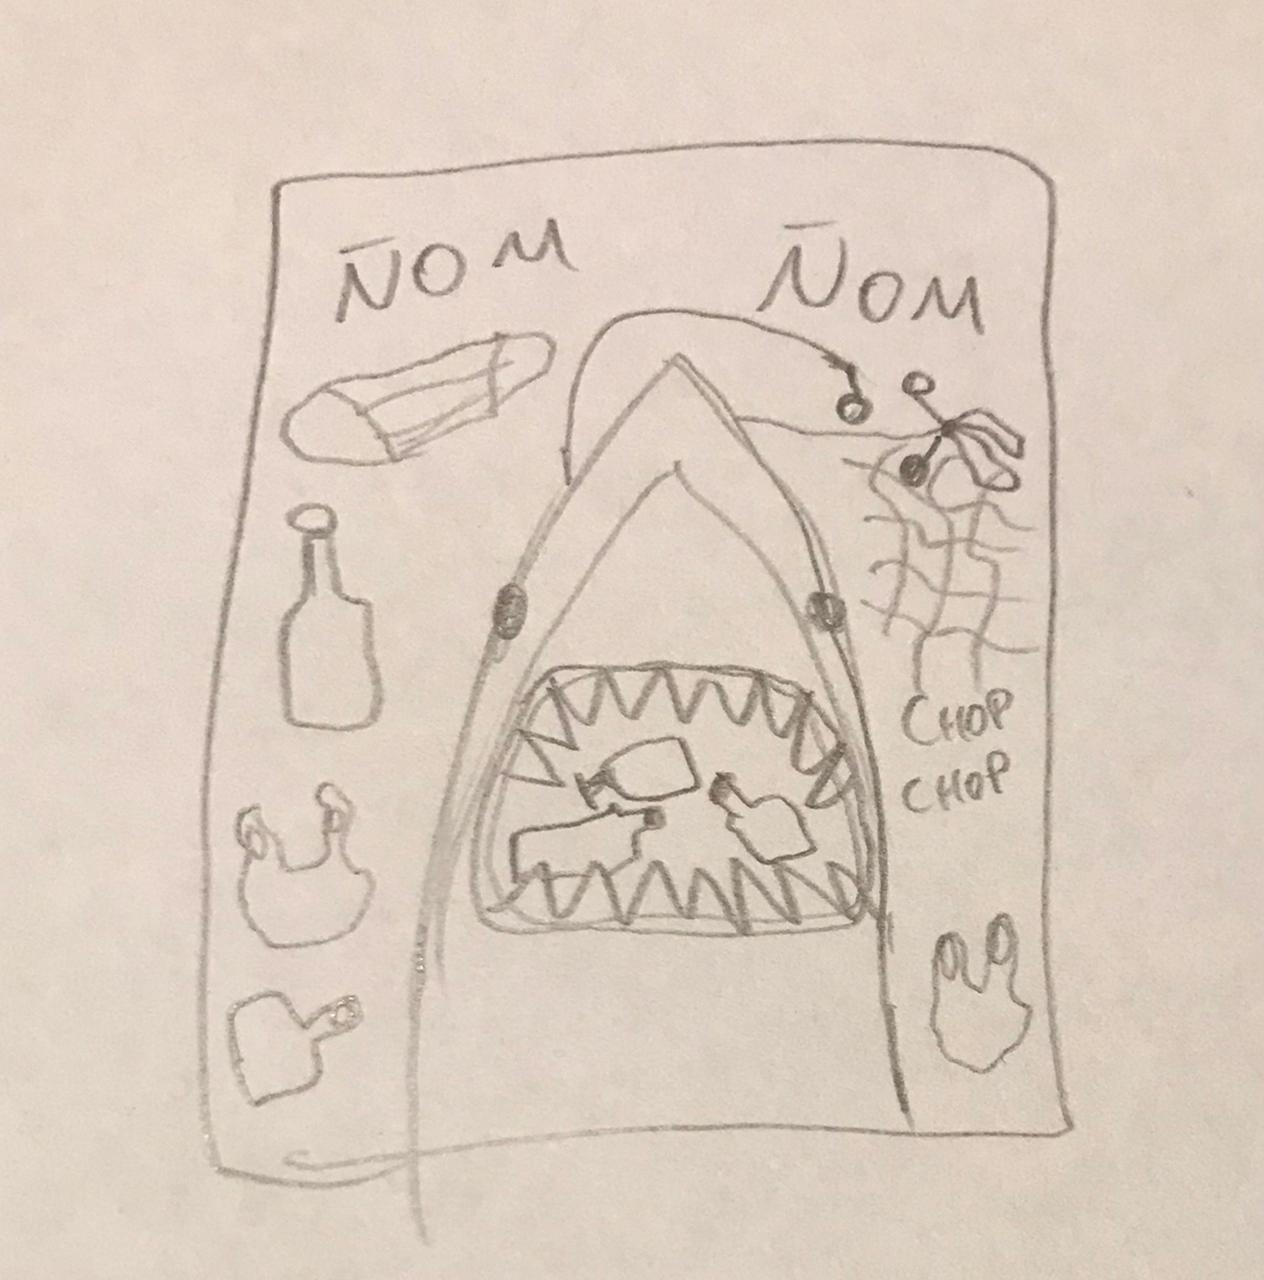 ÑOM ÑOM
CHOP
CHOP